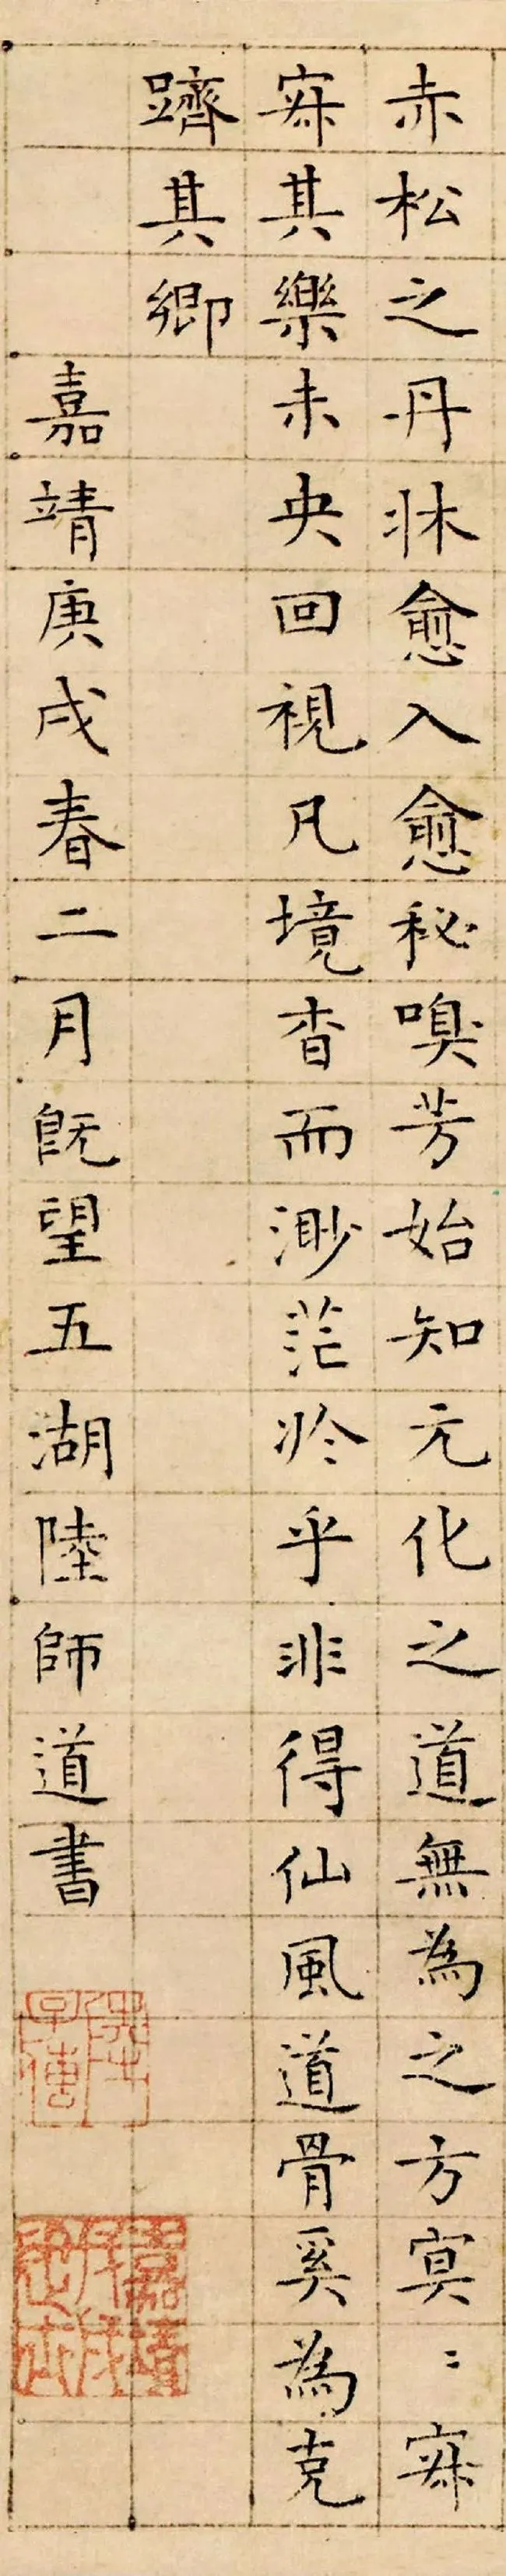 赤松之丹牀愈入愈秘嗅芳始知元化之道無為之方㝠〻寂
寂其樂未央回視凡境杳而渺茫於乎非得仙風道骨奚為克
躋其鄉
嘉靖庚戌春二月既望五湖陸師道書
陸氏子傳
嘉靖戊戌進士